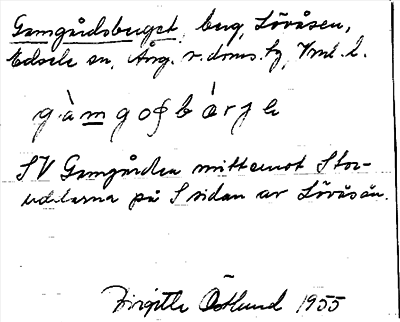 Gamgårdsberget, berg, Lövåsen,
Edsele sn, Ång. v. doms. tg, Vnl. l.
SV Gamgården mittemot Stor-
udelarna på S sidan av Lövåsån.
Birgitta Östlund 1955